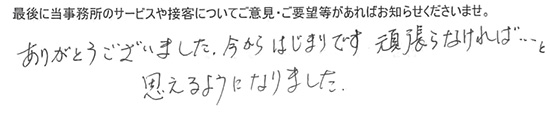 最後に当事務所のサービスや接客についてご意見・ご要望等があればお知らせくださいませ。
ありがとうございました。今からはじまりです 頑張らなければ…と
思えるようになりました。